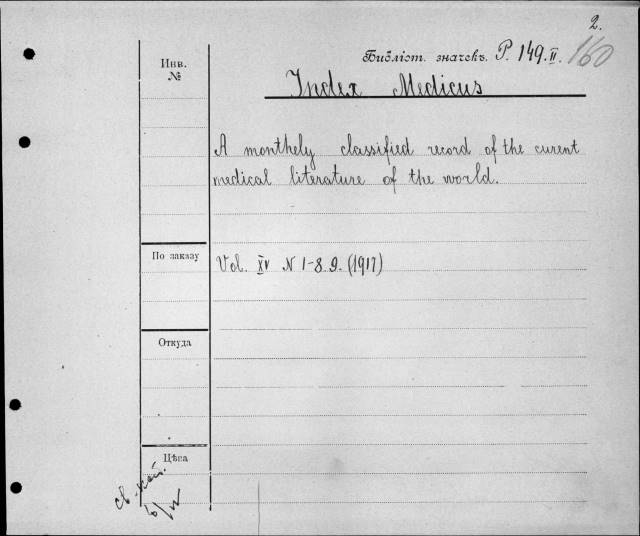 2.
Инв. №
Библіот. значекъ. P. 149.II. 160
Index Medicus
A monthely classified record of the curent
medical literature of the world.
По заказу
Vol. XV N 1-8.9. (1917)
Откуда
Цѣна